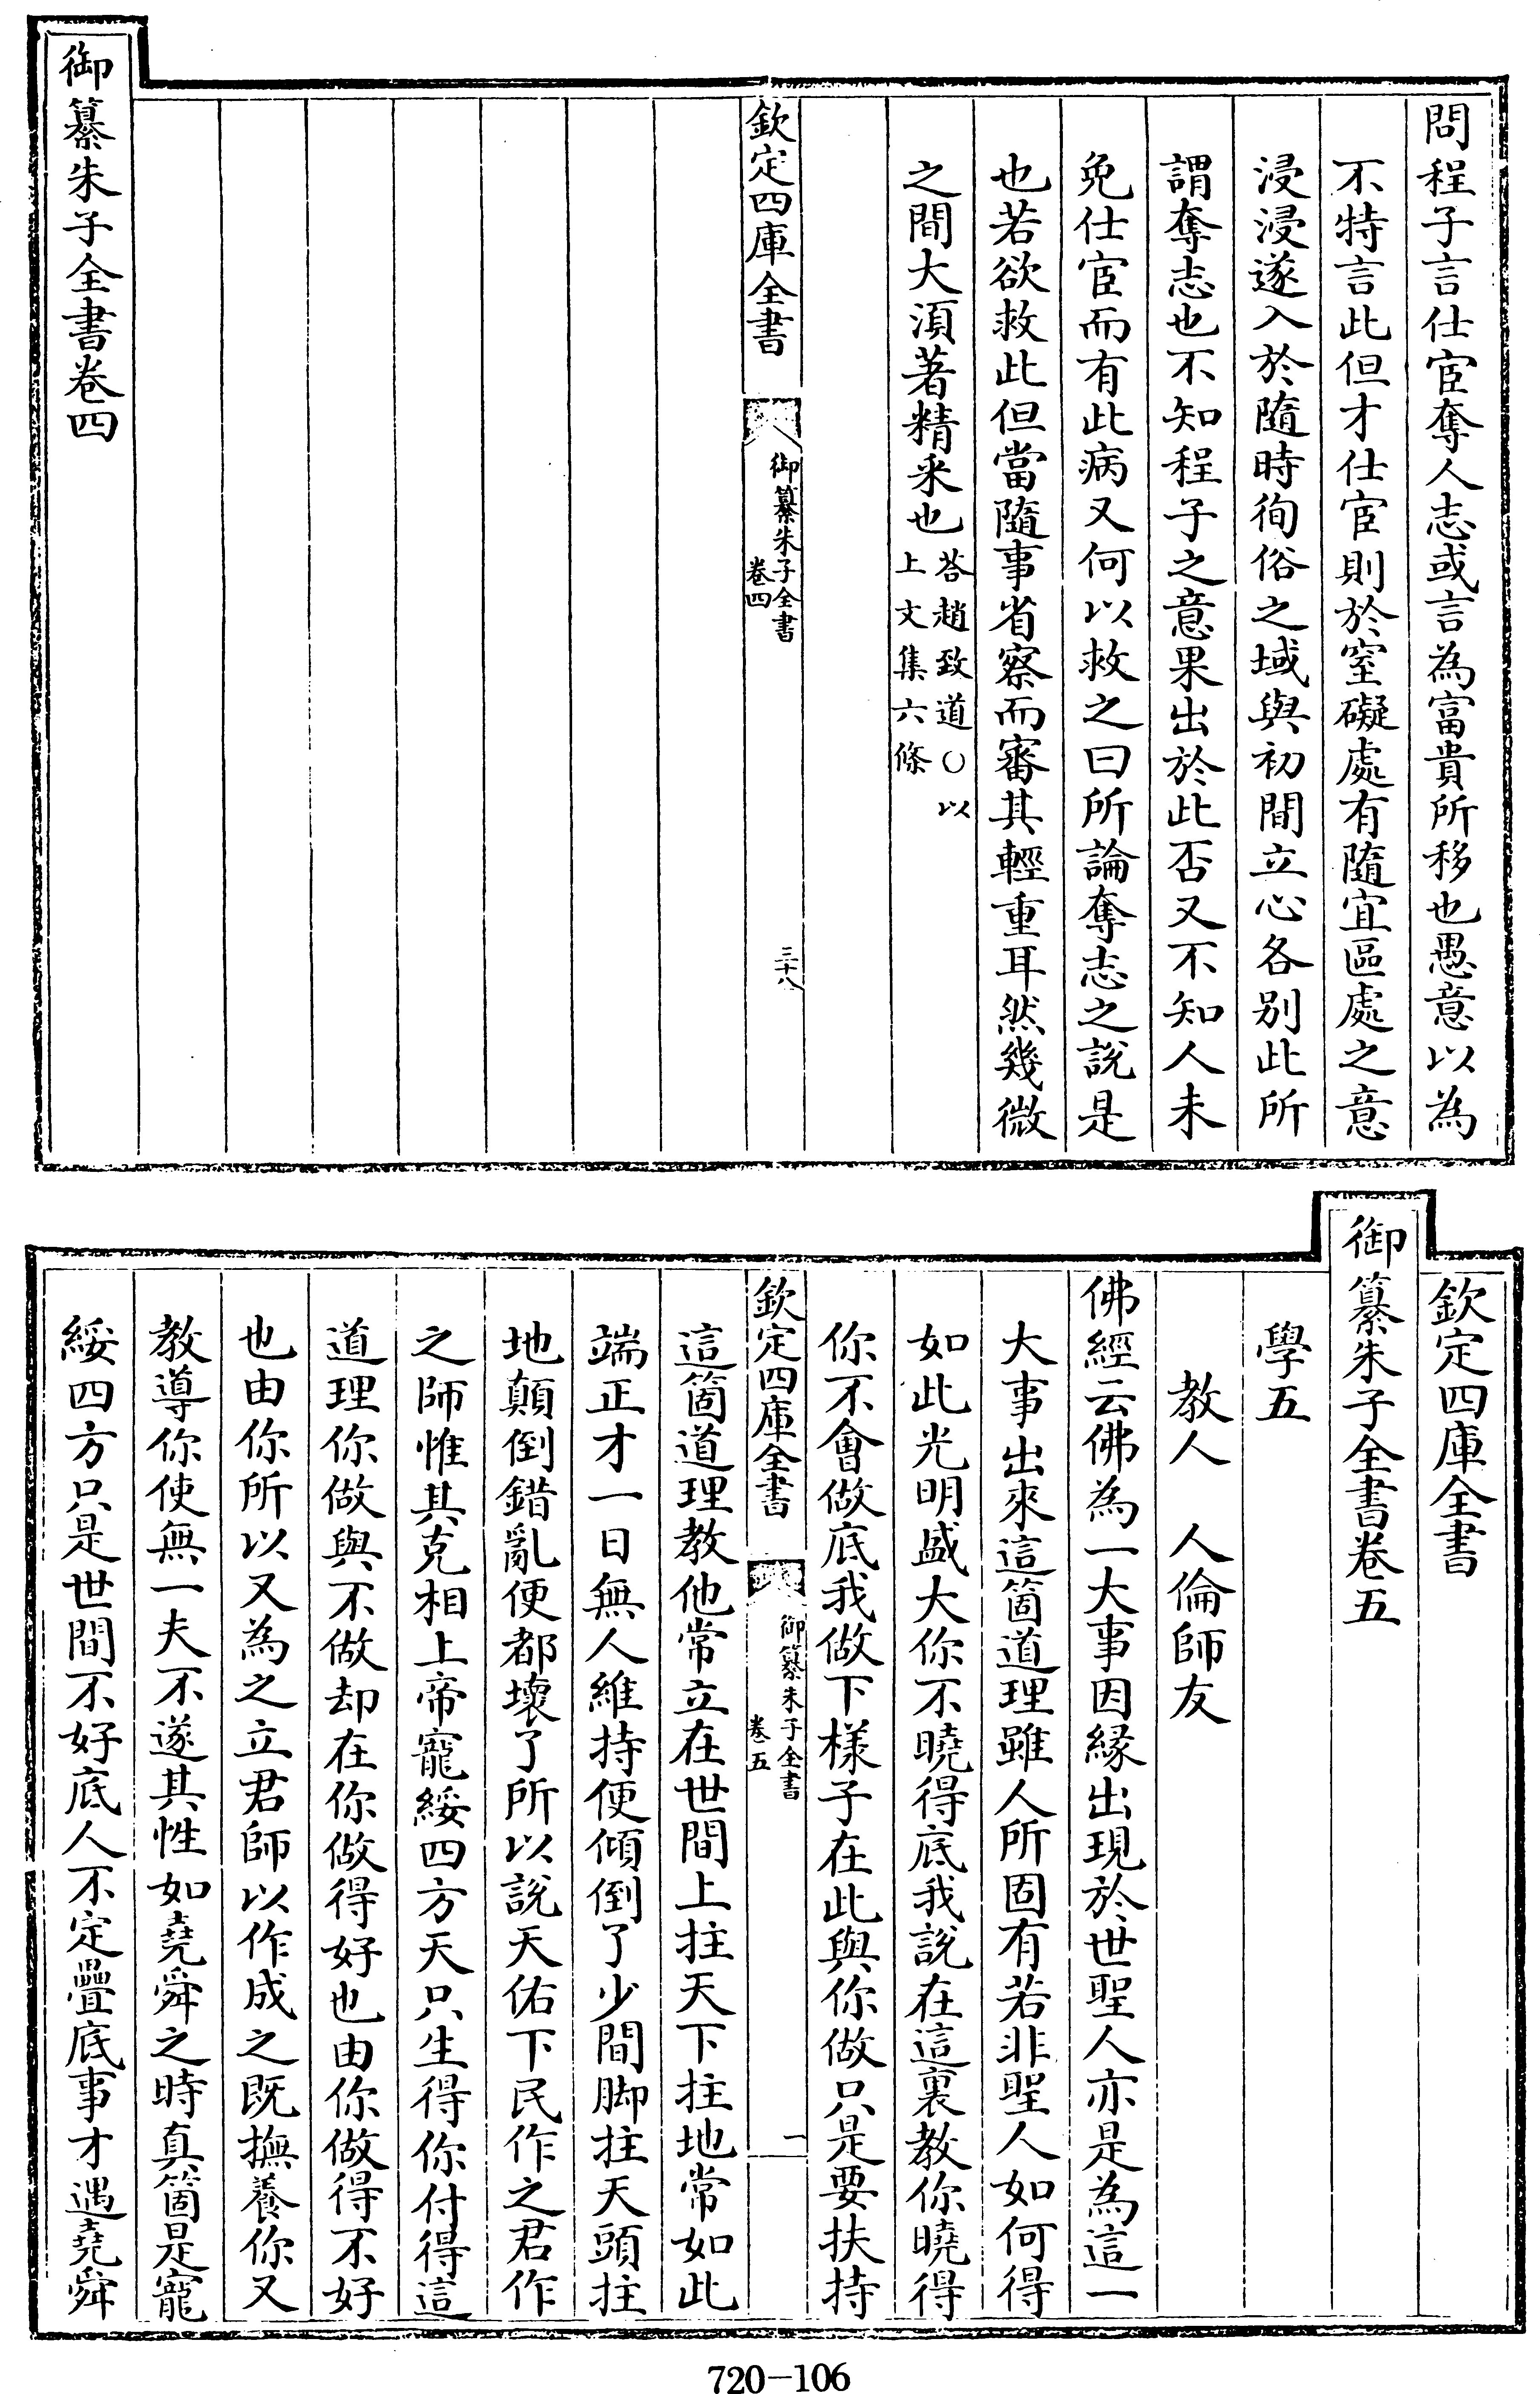 問程子言仕宦奪人志或言為富貴所移也愚意以為
不特言此但才仕宦則於窒礙處有隨宜區處之意
浸浸遂入於隨時徇俗之域與初間立心各别此所
謂奪志也不知程子之意果出於此否又不知人未
免仕宦而有此病又何以救之曰所論奪志之說是
也若欲救此但當隨事省察而審其輕重耳然幾微
之間大須著精采也答趙致道○以
上文集六條
欽定四庫全書
御纂朱子全書
卷四
三十八
御纂朱子全書卷四
欽定四庫全書
御纂朱子全書卷五
學五
教人 人倫師友
佛經云佛為一大事因緣出現於世聖人亦是為這一
大事出來這箇道理雖人所固有若非聖人如何得
如此光明盛大你不曉得底我說在這裏教你曉得
你不會做底我做下樣子在此與你做只是要扶持
欽定四庫全書
御纂朱子全書
卷五
一
這箇道理教他常立在世間上拄天下拄地常如此
端正才一日無人維持便傾倒了少間脚拄天頭拄
地顛倒錯亂便都壞了所以說天佑下民作之君作
之師惟其克相上帝寵綏四方天只生得你付得這
道理你做與不做却在你做得好也由你做得不好
也由你所以又為之立君師以作成之既撫養你又
教導你使無一夫不遂其性如堯舜之時真箇是寵
綏四方只是世間不好底人不定疊底事才遇堯舜
720-106